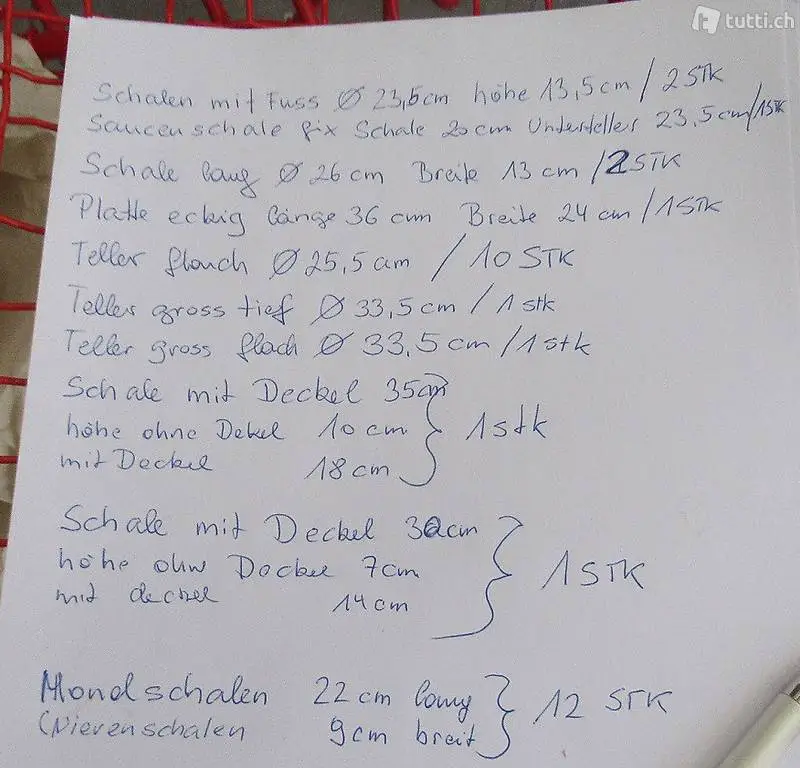 tutti.ch
Schalen mit Fuss Ø 23,5cm höhe 13,5cm / 2STK
Saucenschale fix Schale 20cm Unterteller 23.5cm/1STK
Schale lang Ø 26cm Breite 13cm /2STK
Platte eckig länge 36 cm Breite 24 cm /1STK
Teller flach Ø 25,5 cm / 10 STK
Teller gross tief Ø 33,5cm / 1 stk
Teller gross flach Ø 33.5cm /1stk
Schale mit Deckel 35cm
höhe ohne Dekel 10cm } 1stk
mit Deckel 18cm
Schale mit Deckel 30cm
höhe ohne Deckel 7cm } 1STK
mit deckel 14cm
Mondschalen 22cm lang } 12 STK
(Nierenschalen 9cm breit